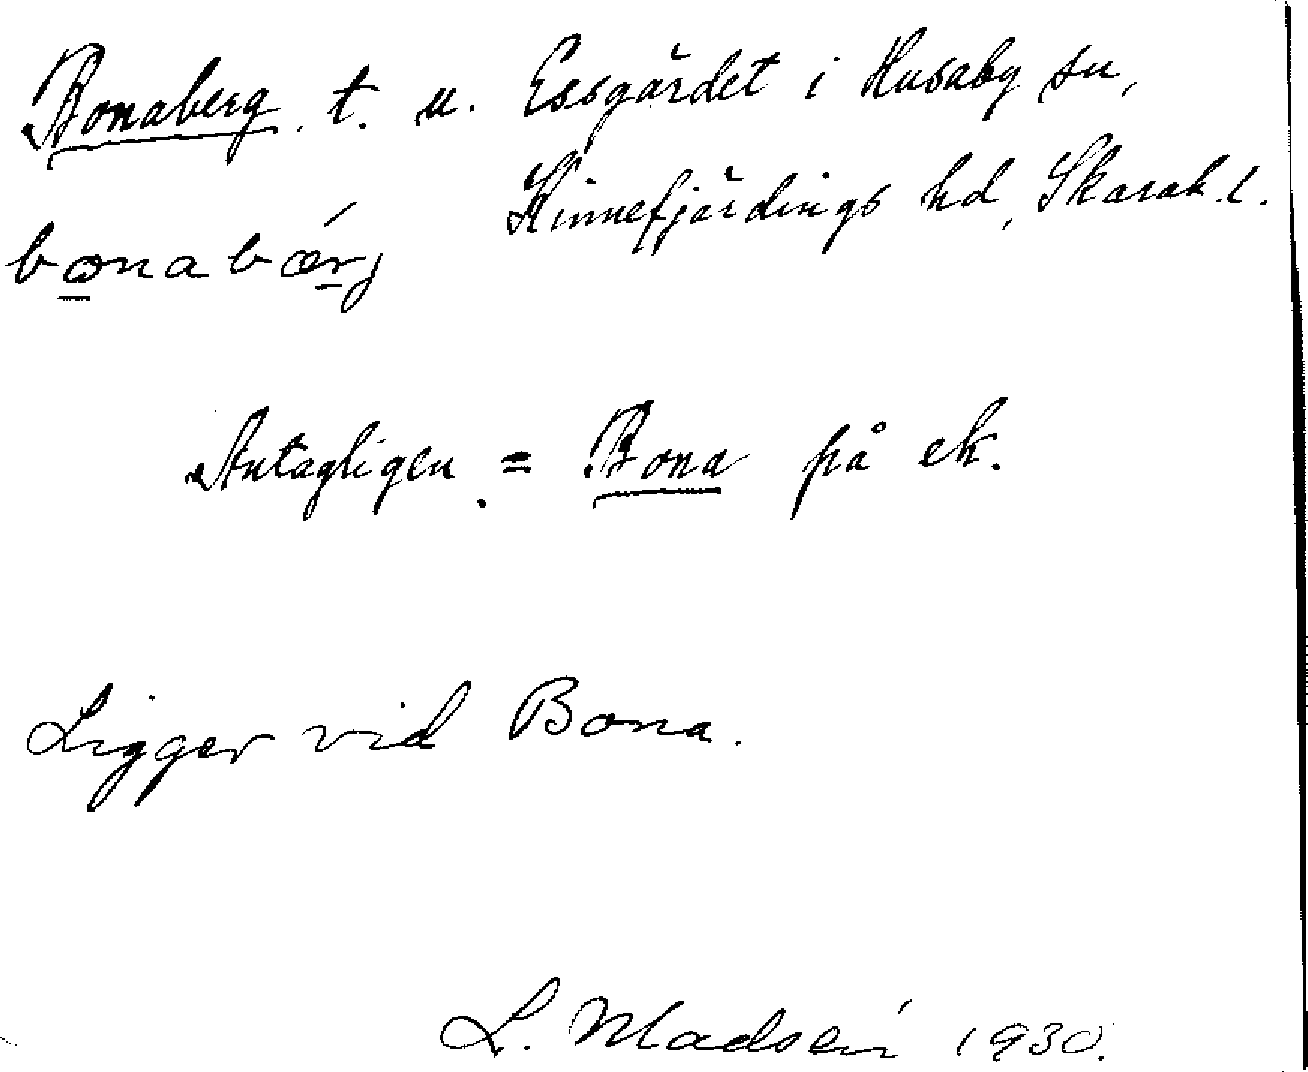 Bonaberg, t. u. Essgärdet i Husaby sn,
Kinnefjärdings hd, Skarab. l.
bonabǽrj
Antagligen = Bona på ek.
Ligger vid Bona.
L. Madsén 1930.